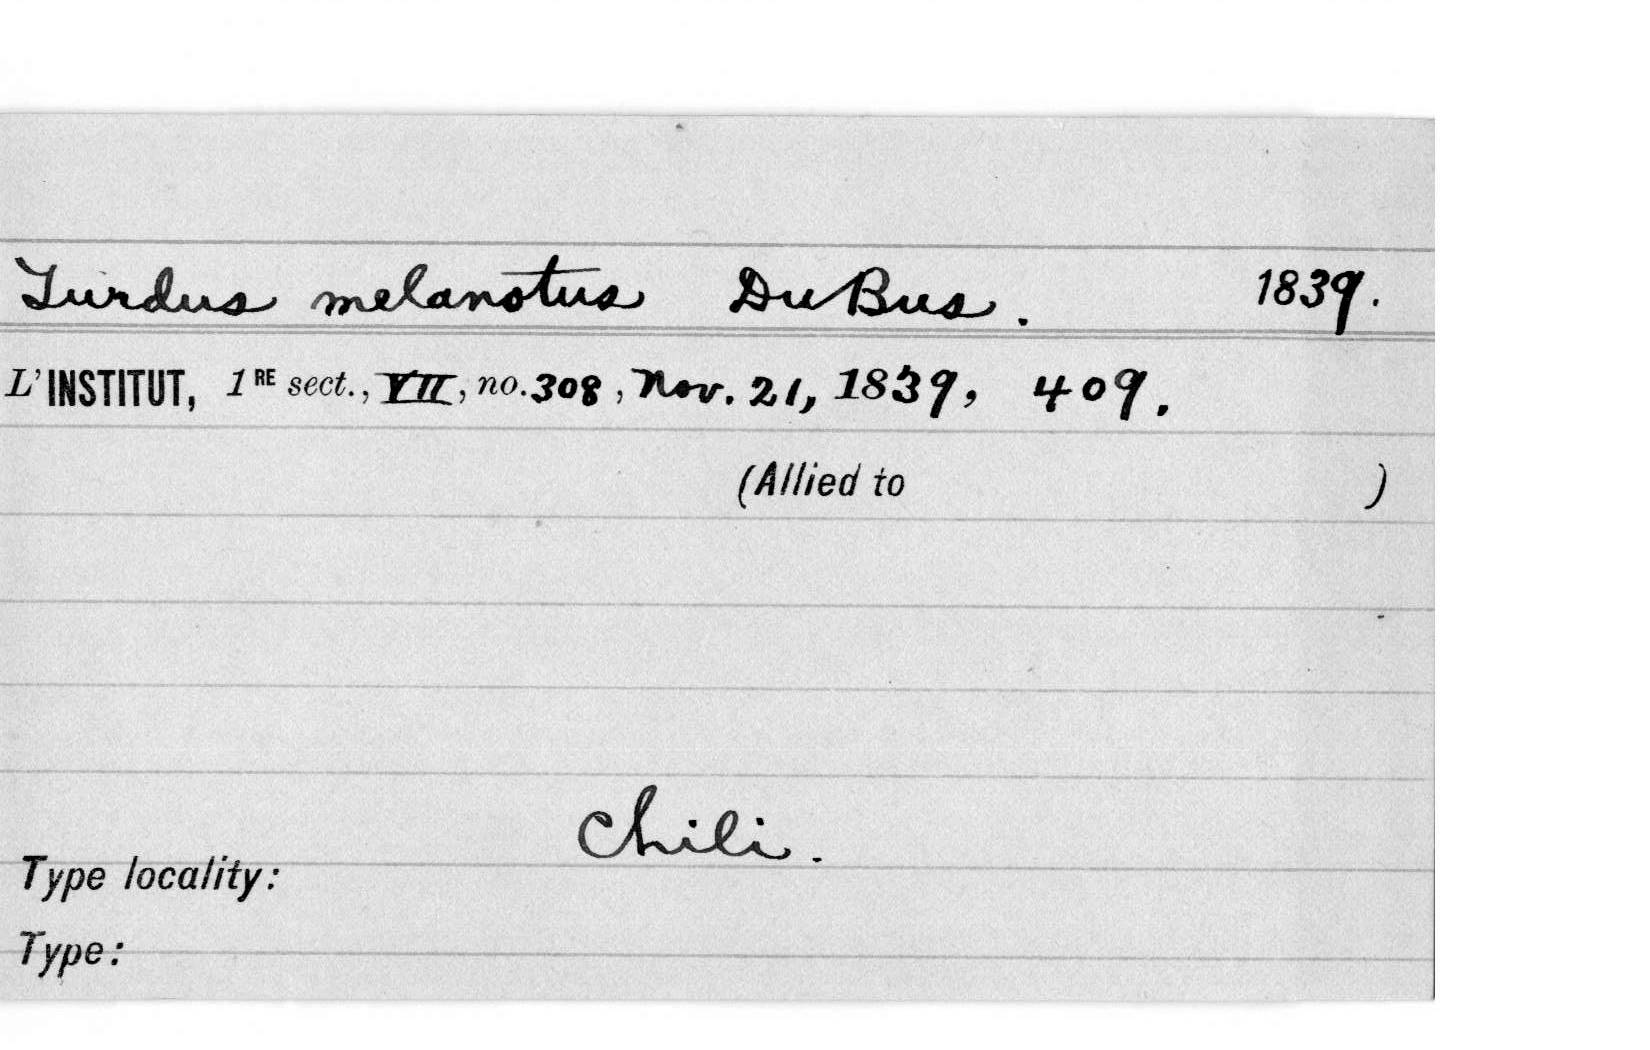 Turdus melanotus DuBus. 1839.
L'INSTITUT, 1RE sect., VII, no. 308, Nov. 21, 1839, 409.
(Allied to )
Chili.
Type locality:
Type: